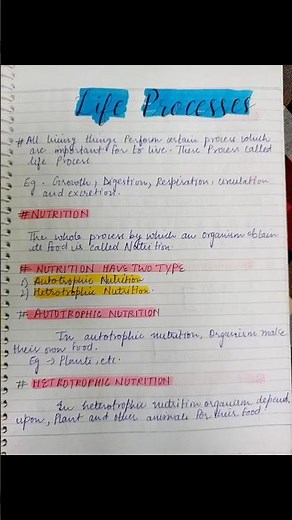 Life Processes
# All living things Perform certain process which
are important for to live. These Process called
life Process
Eg - Growth, Digestion, Respiration, circulation
and excretion.
# NUTRITION
The whole process by which an organism obtain
its food is called Nutrition.
# NUTRITION HAVE TWO TYPE
1) Autotrophic Nutrition
2) Hetrotrophic Nutrition.
# AUTOTROPHIC NUTRITION
In autotrophic nutrition, Organism make
their own food.
Eg → Plants, etc.
# HETROTROPHIC NUTRITION
In heterotrophic nutrition organism depend
upon, Plant and other animals for their food